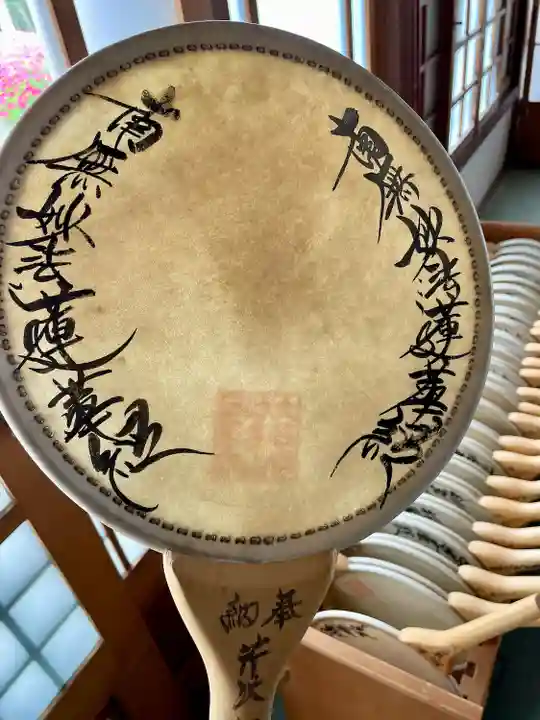 南無妙法蓮華経
南無妙法蓮華経
奉納